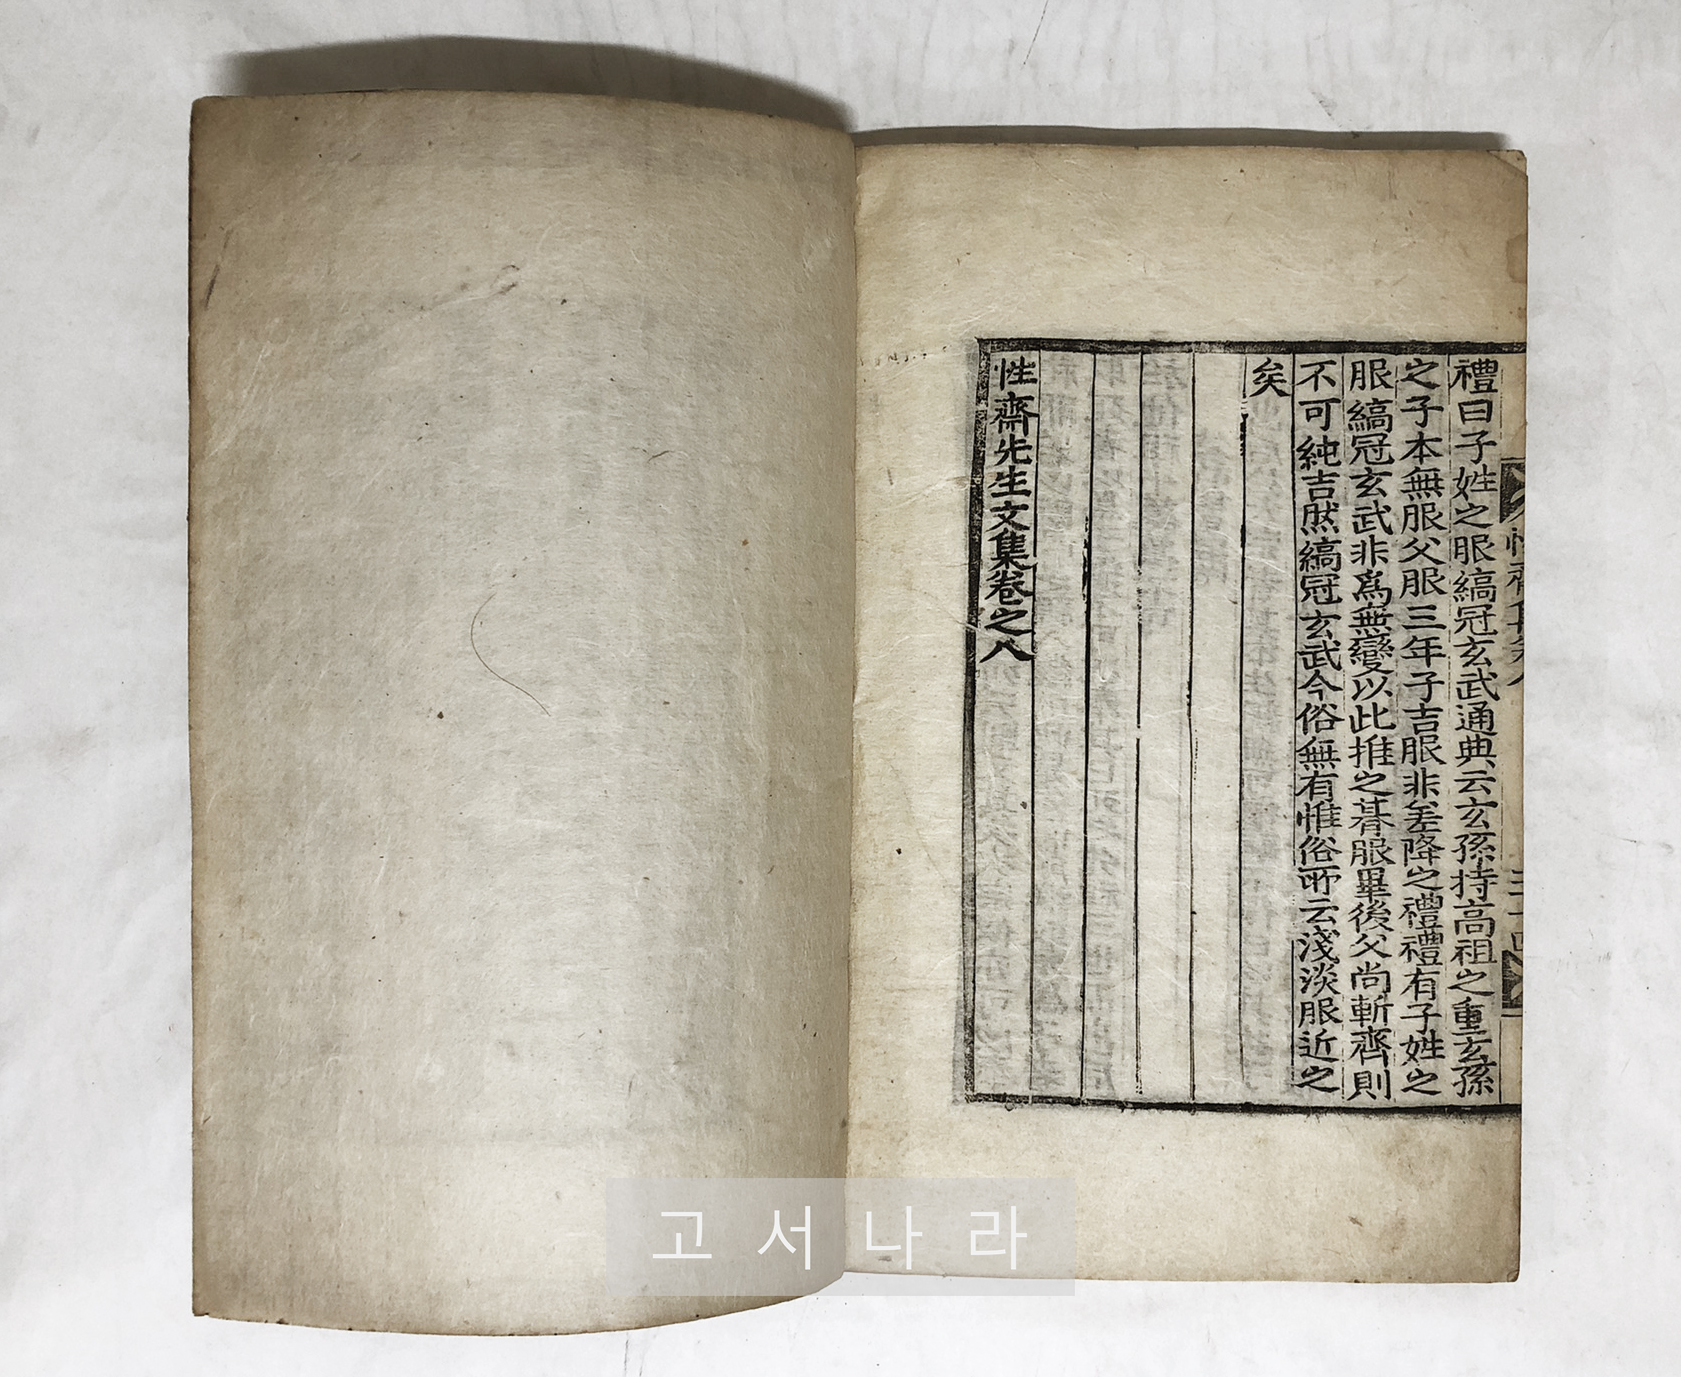 禮曰子姓之服縞冠玄武通典云玄孫持高祖之重玄孫
之子本無服父服三年子吉服非差降之禮禮有子姓之
服縞冠玄武非爲無變以此推之朞服畢後父尙斬齊則
不可純吉然縞冠玄武今俗無有惟俗所云淺淡服近之
矣
性齋先生文集卷之八
고서나라